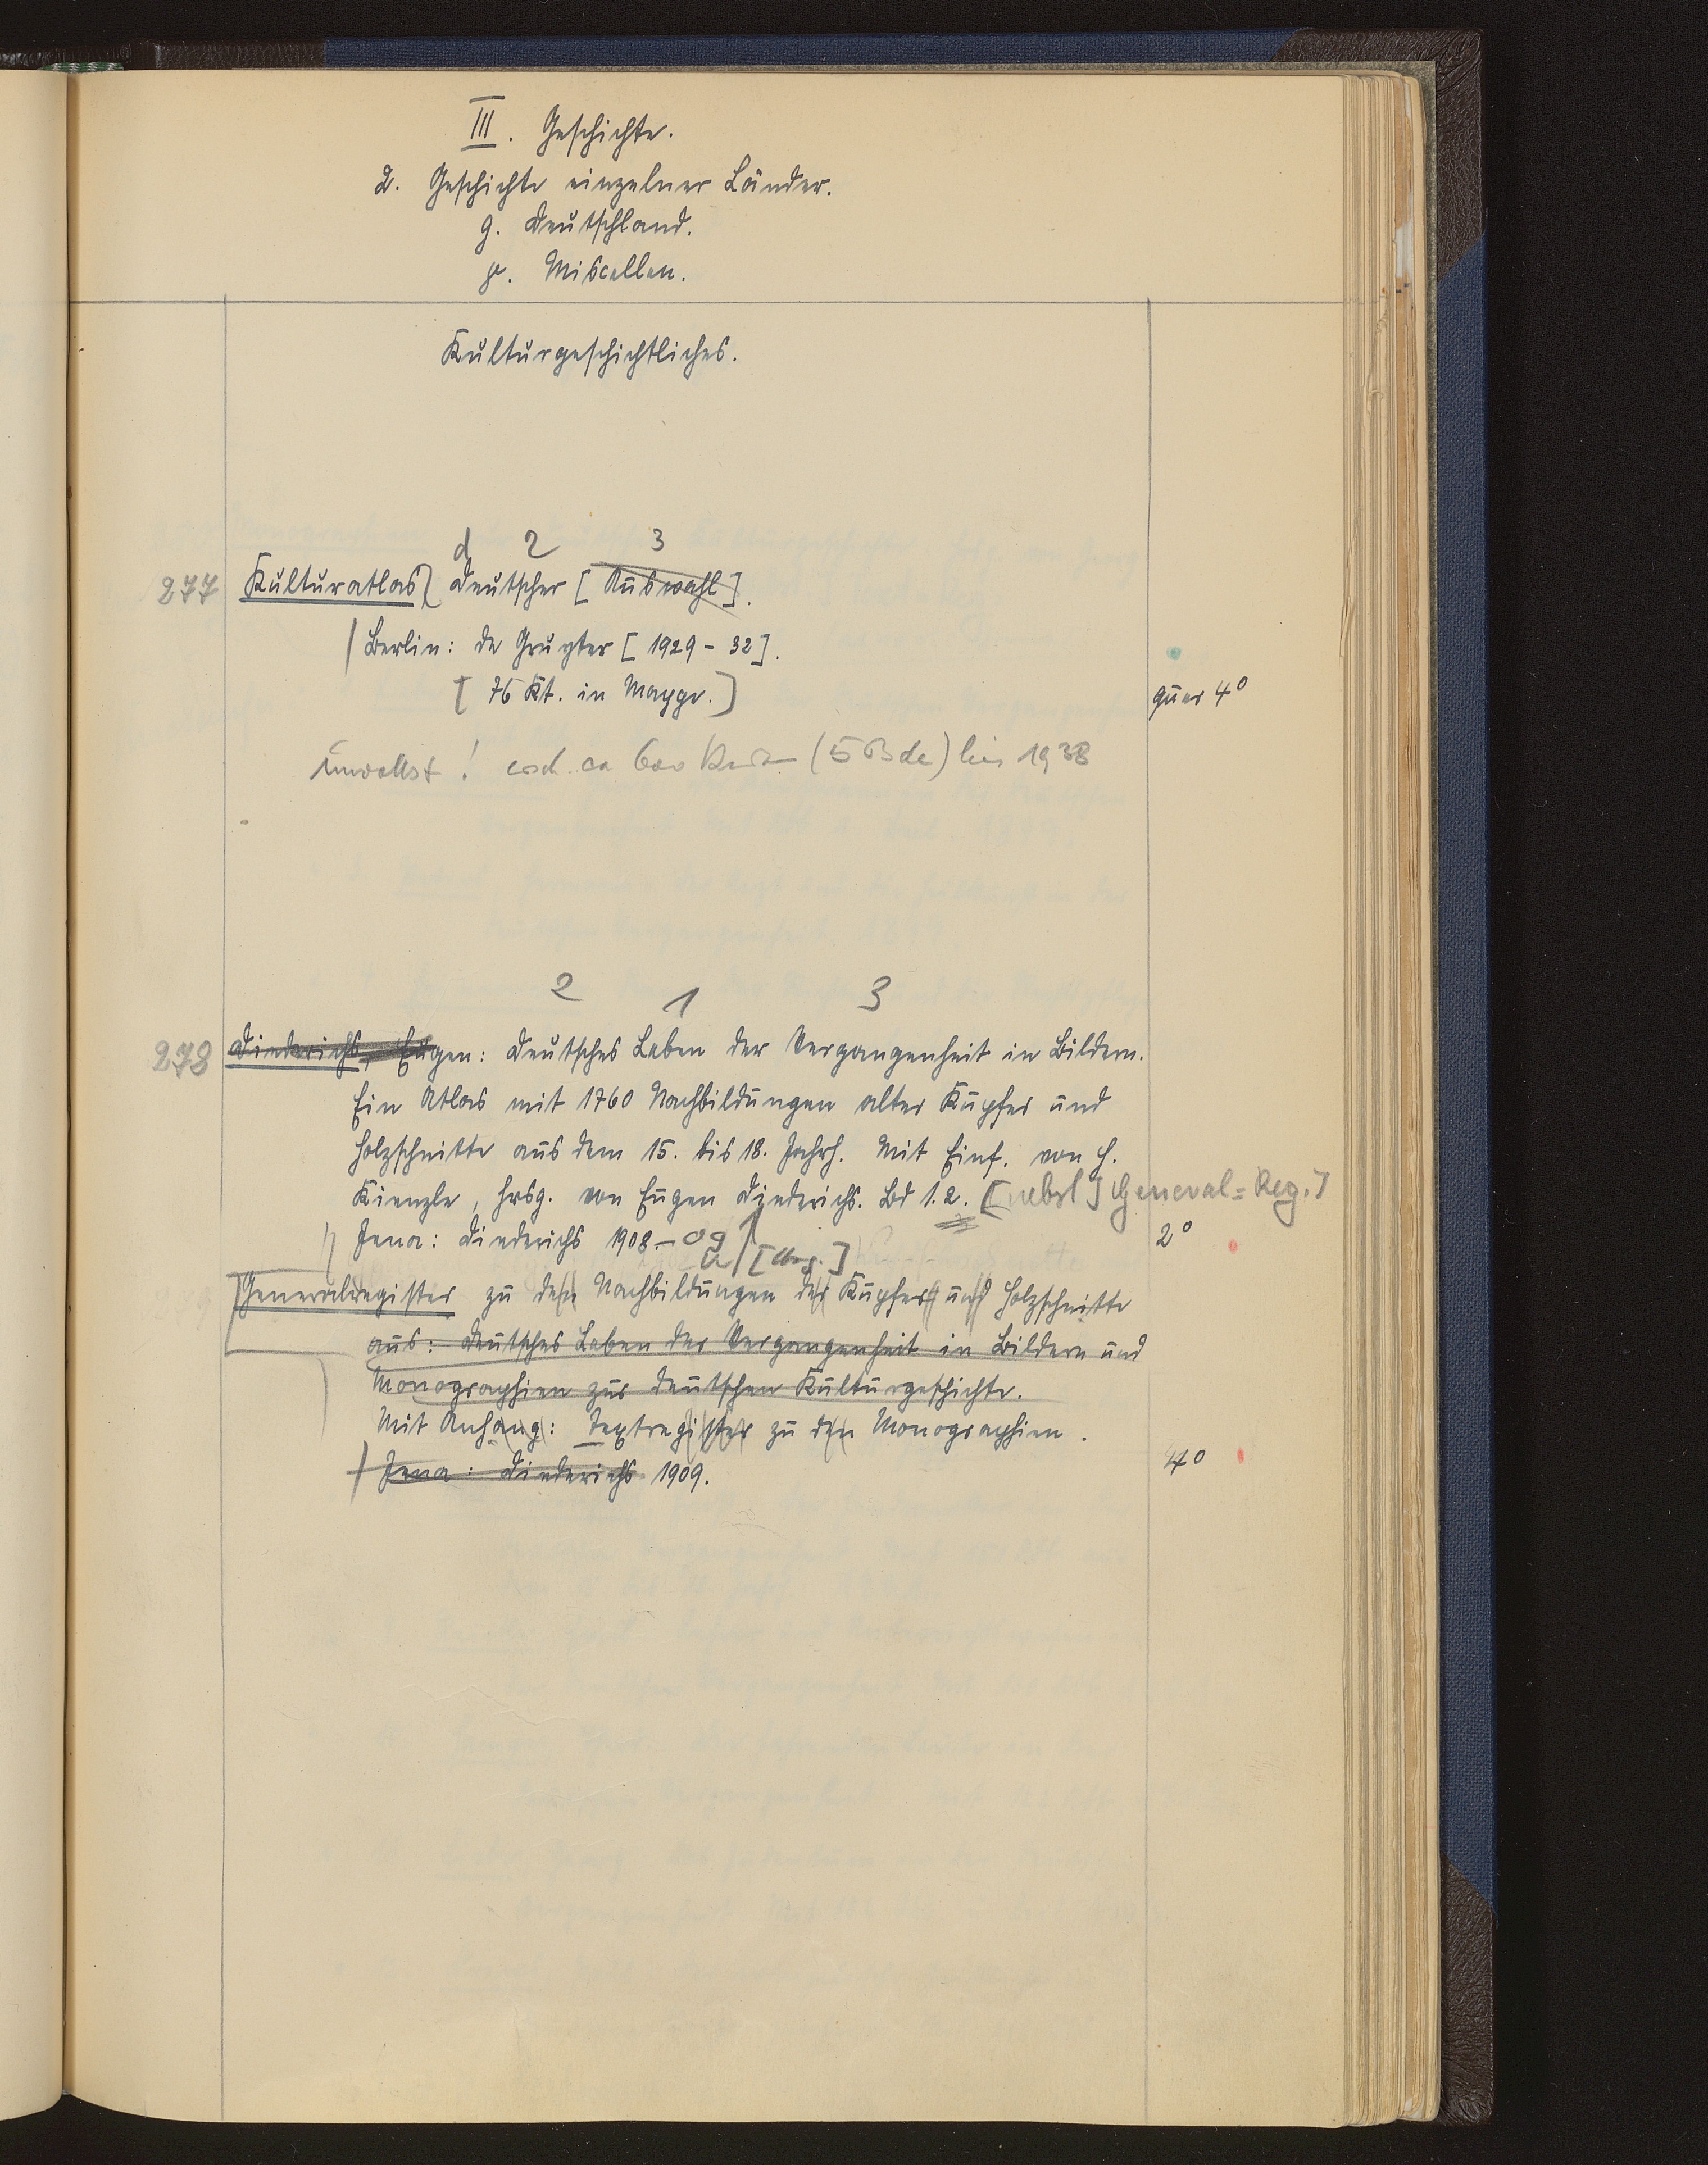 III. Geschichte.
2. Geschichte einzelner Länder.
g. Deutschland.
γ. Miscellen.
Kulturgeschichtliches.
d 2 3
277 Kulturatlas, Deutscher [Auswahl].
Berlin: de Gruyter [1929-32].
[76 Kt. in Mappe.] quer 4°
unvollst! ca 600 (5 Bde) bis 1938
2 1 3
278 Diederichs, Eugen: Deutsches Leben der Vergangenheit in Bildern.
Ein Atlas mit 1760 Nachbildungen alter Kupfer und
Holzschnitte aus dem 15. bis 18. Jahrh. Mit Einf. von H.
Kienzle, hrsg. von Eugen Diederichs. Bd 1.2. [nebst] General=Reg.]
Jena: Diederichs 1908-09 2°
Generalregister zu den Nachbildungen der Kupfer und Holzschnitte
aus: Deutsches Leben der Vergangenheit in Bildern und
Monographien zur deutschen Kulturgeschichte.
Mit Anhang: Textregister zu den Monographien.
Jena: Diederichs 1909. 4°